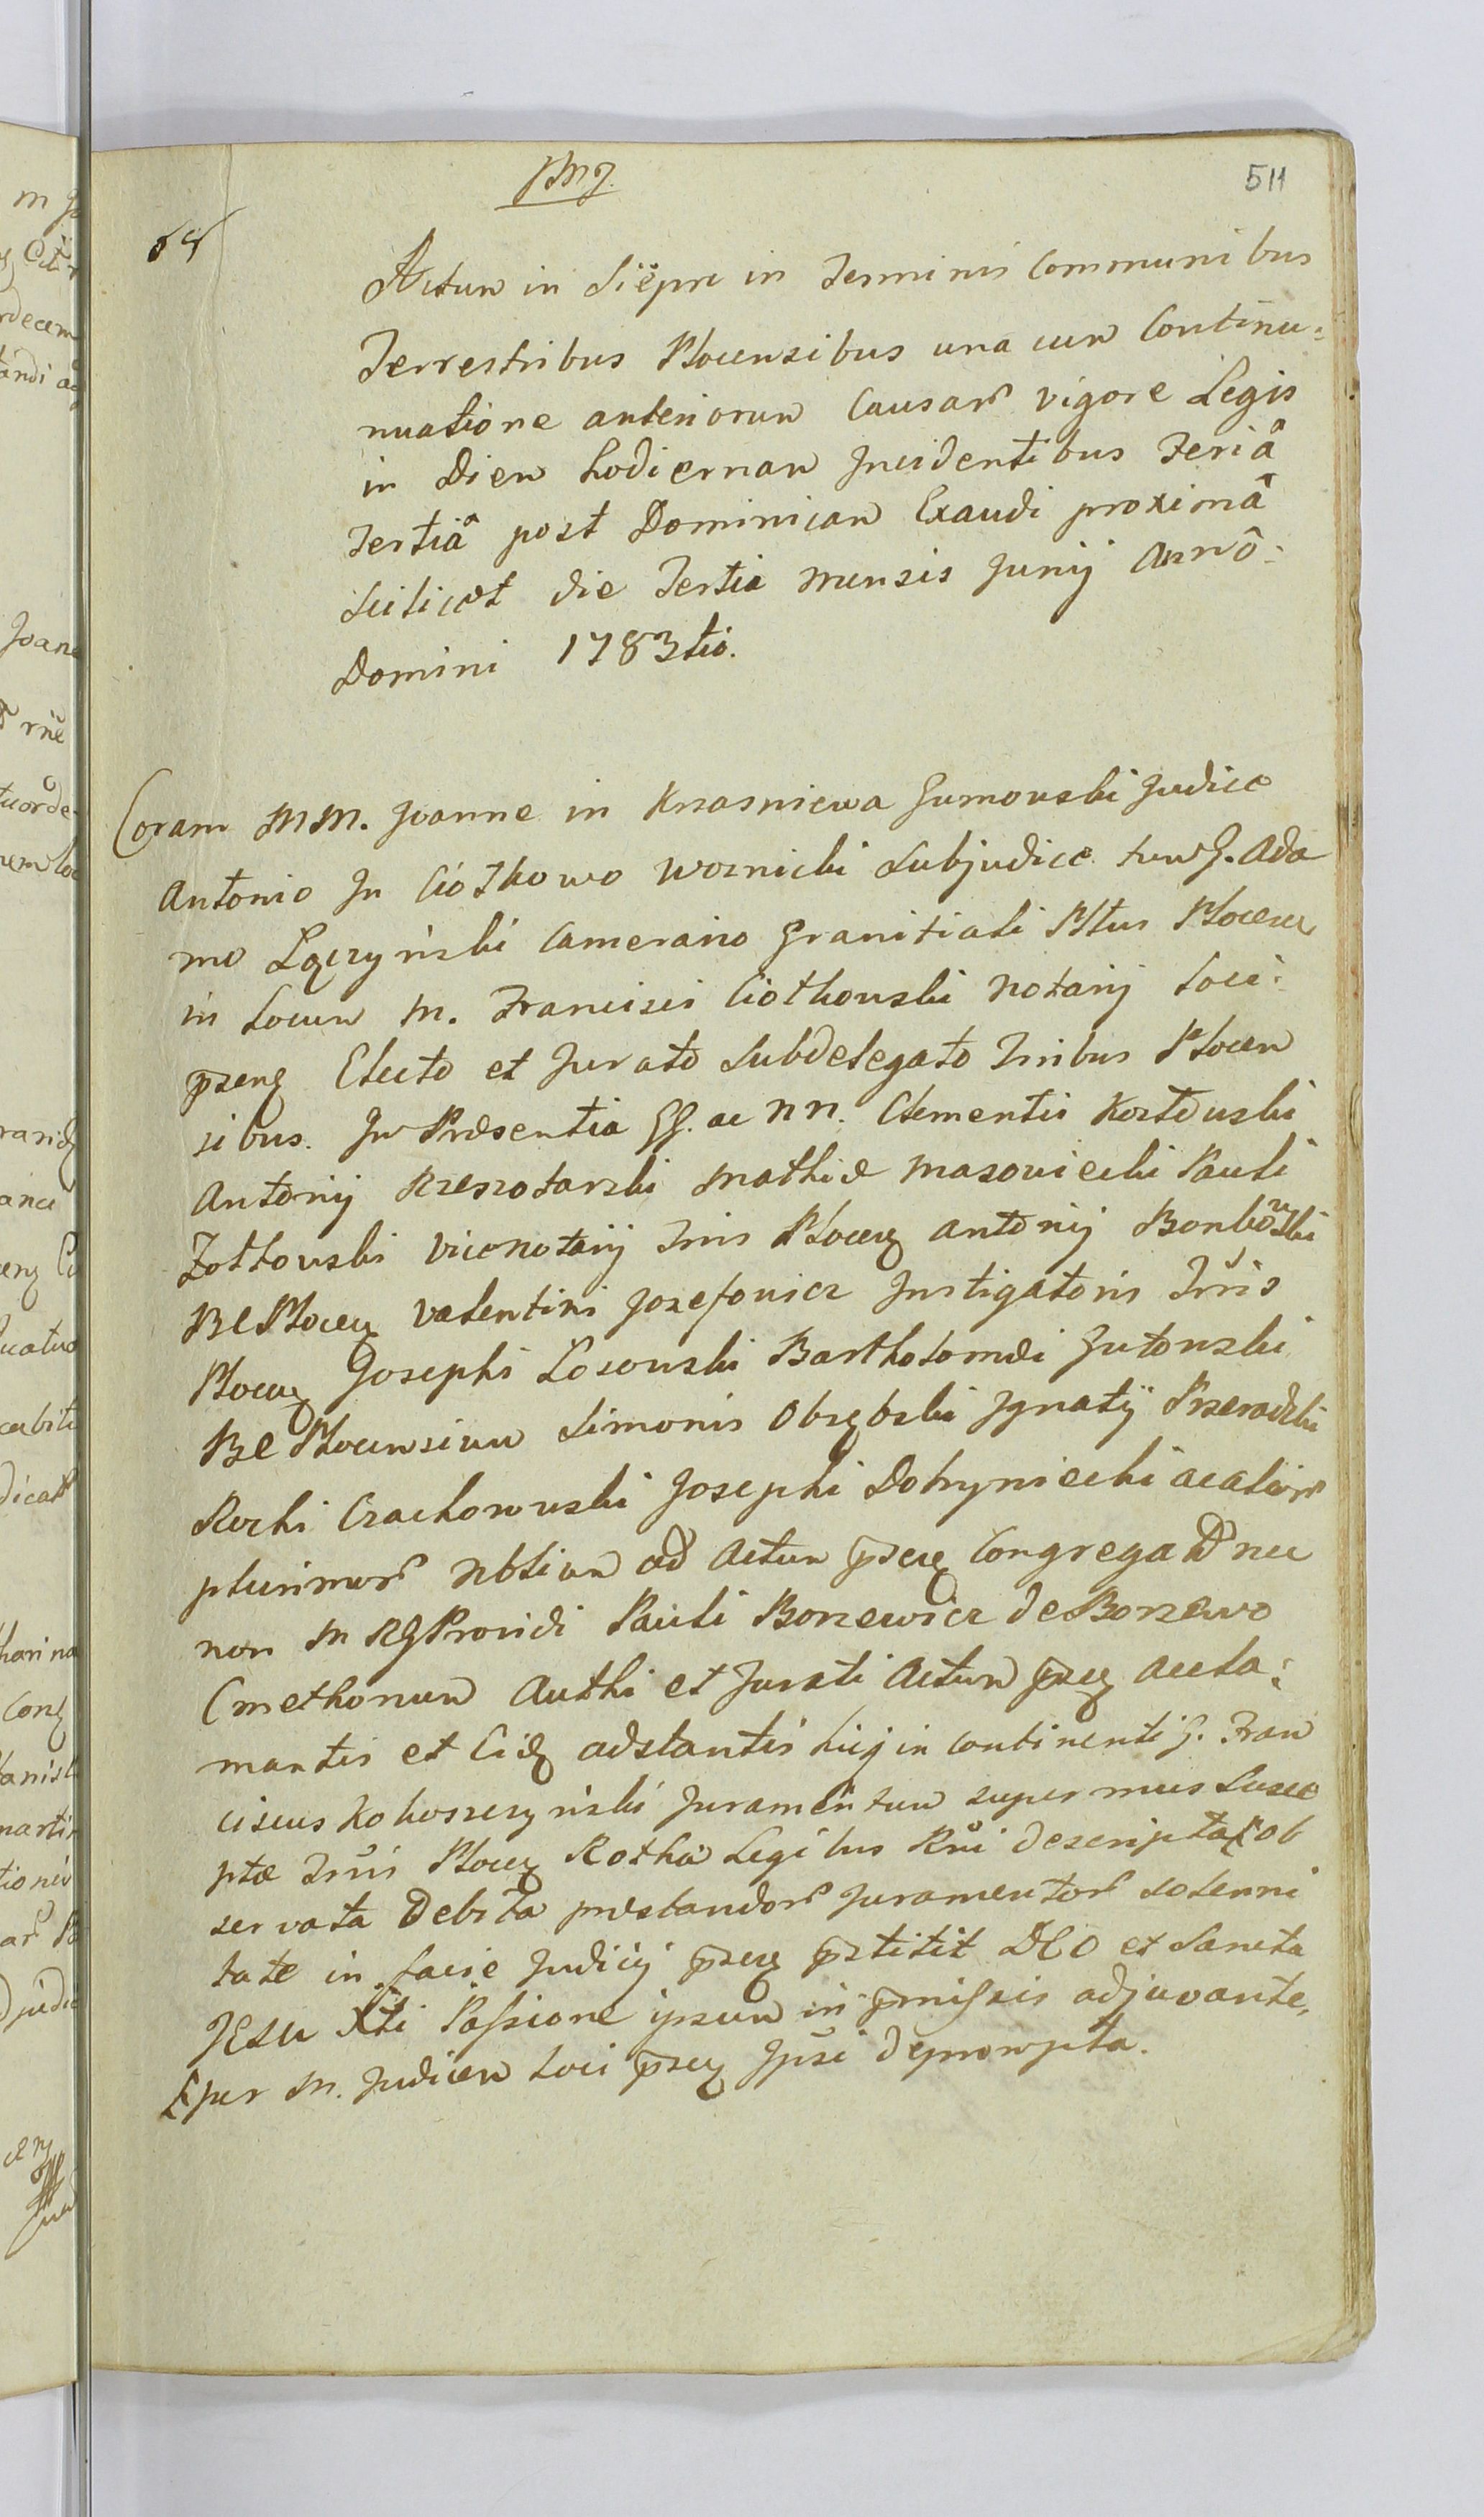 511
Actum in Siepre in Terminis Communibus
Terrestribus Plocensibus una cum Continu=
nuatione anteriorum Causar vigore Legis
in Diem hodiernam Incidentibus Feriâ
Tertiâ post Dominicam Exaudi proximâ
Scilicet die Tertia mensis Junij Annô
Domini 1783tio.
Coram MM. Joanne in Krzasniewa Gumowski Judice
Antonio In Ciółkowo Woznicki Subjudice tum G. Ada
mo Łączyński Camerario Granitiali Pltus Plocen
in Locum M. Francisci Ciołkowski Notarij Loci
pñsens Electo et Jurato Subdelegato Tribus Plocen
sibus. In Præsentia GG. ac NN. Clementis
Antonij Mathiæ Masoviecki Pauli
Zołtowski Vicenotarij Tris Plocens Antonij Bonkowski
BC Plocens Valentini Josefowicz Instigatoris Trris
Plocens Josephi Łosowski Bartholomæi Gutowski
BC Plocensium Simonis Obrębski Ignatij Przeradzki
Rochi Czachorowski Josephi Dobrzyniecki ac alior
plurimor Nblium ad Actum pñsens Congregat nec
non M RG Providi Pauli Borzewicz de Borzewo
Cmethonum Authi et Jurati Actum pñsens accla=
mantis et Eidem adstantis hicq in continenti G. Fran
ciscus Kokoszczyński Juramentum super munus Susce
ptæ Trris Plocens Rotha Legibus Rni descripta ob
servata Debita præstandor Juramentor solenni
tate in facie Judicij pñsens pr̃stitit DEO et Sancta
JESU Xti Passione ipsum in pr̃missis adjuvante.
per M. Judicem Loci pñsens Ipsi deprompta.